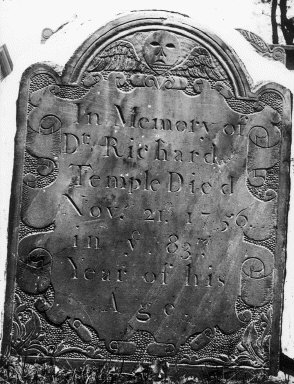 In Memory of
Dr. Richard
Temple Died
Nov. 21st 1756,
in ye. 83d.
Year of his
Age.